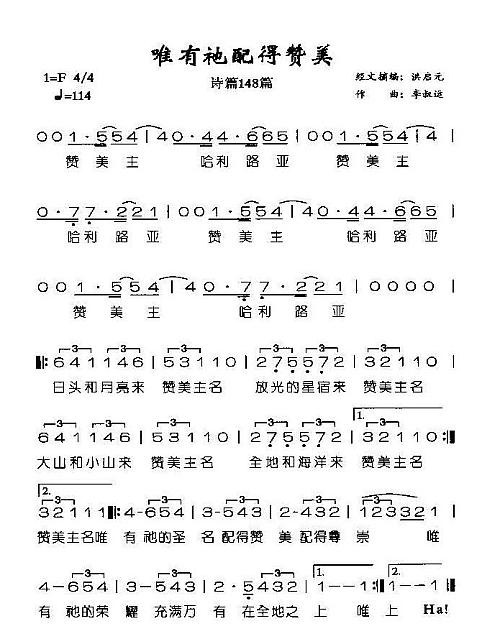 唯有祂配得赞美
1=F 4/4
诗篇148篇
经文摘编：洪启元
♩=114
作 曲：李叔运
0 0 1 · 5 5 4 | 4 0 · 4 4 · 6 6 5 | 0 0 1 · 5 5 4 |
赞 美 主 哈 利 路 亚 赞 美 主
0 · 7 7 · 2 2 1 | 0 0 1 · 5 5 4 | 4 0 · 4 4 · 6 6 5 |
哈 利 路 亚 赞 美 主 哈 利 路 亚
0 0 1 · 5 5 4 | 4 0 · 7 7 · 2 2 1 | 0 0 0 0 |
赞 美 主 哈 利 路 亚
-3- -3- -3- -3- -3- -3-
‖: 6 4 1 1 4 6 | 5 3 1 1 0 | 2 7 5 5 7 2 | 3 2 1 1 0 |
日头和月亮来 赞美主名 放光的星宿来 赞美主名
-3- -3- -3- -3- -3- 1. -3-
6 4 1 1 4 6 | 5 3 1 1 0 | 2 7 5 5 7 2 | 3 2 1 1 0 :‖
大山和小山来 赞美主名 全地和海洋来 赞美主名
2. -3- -3- -3- -3-
3 2 1 1 1 ‖: 4 - 6 5 4 | 3 · 5 4 3 | 2 - 4 3 2 | 1 2 3 3 2 1 |
赞美主名唯 有 祂的圣 名 配得赞 美 配得尊 崇 唯
-3- -3- -3- 1. 2.
4 - 6 5 4 | 3 · 5 4 3 | 2 · 5 4 3 2 | 1 - - 1 :‖ 1 - - 1 |
有 祂的荣 耀 充满万 有 在全地之 上 唯 上 Ha!